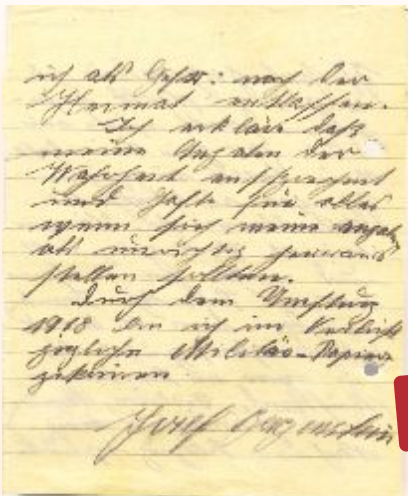 ich als Gefr: nach der
Heimat entlassen.
Ich erkläre daß
meine Angaben der
Wahrheit entsprechend
und hafte für alles
wenn sich meine Angaben
als unrichtig heraus
stellen sollten.
Durch dem Umsturz
1918 bin ich im
Militär-Papiere
Josef